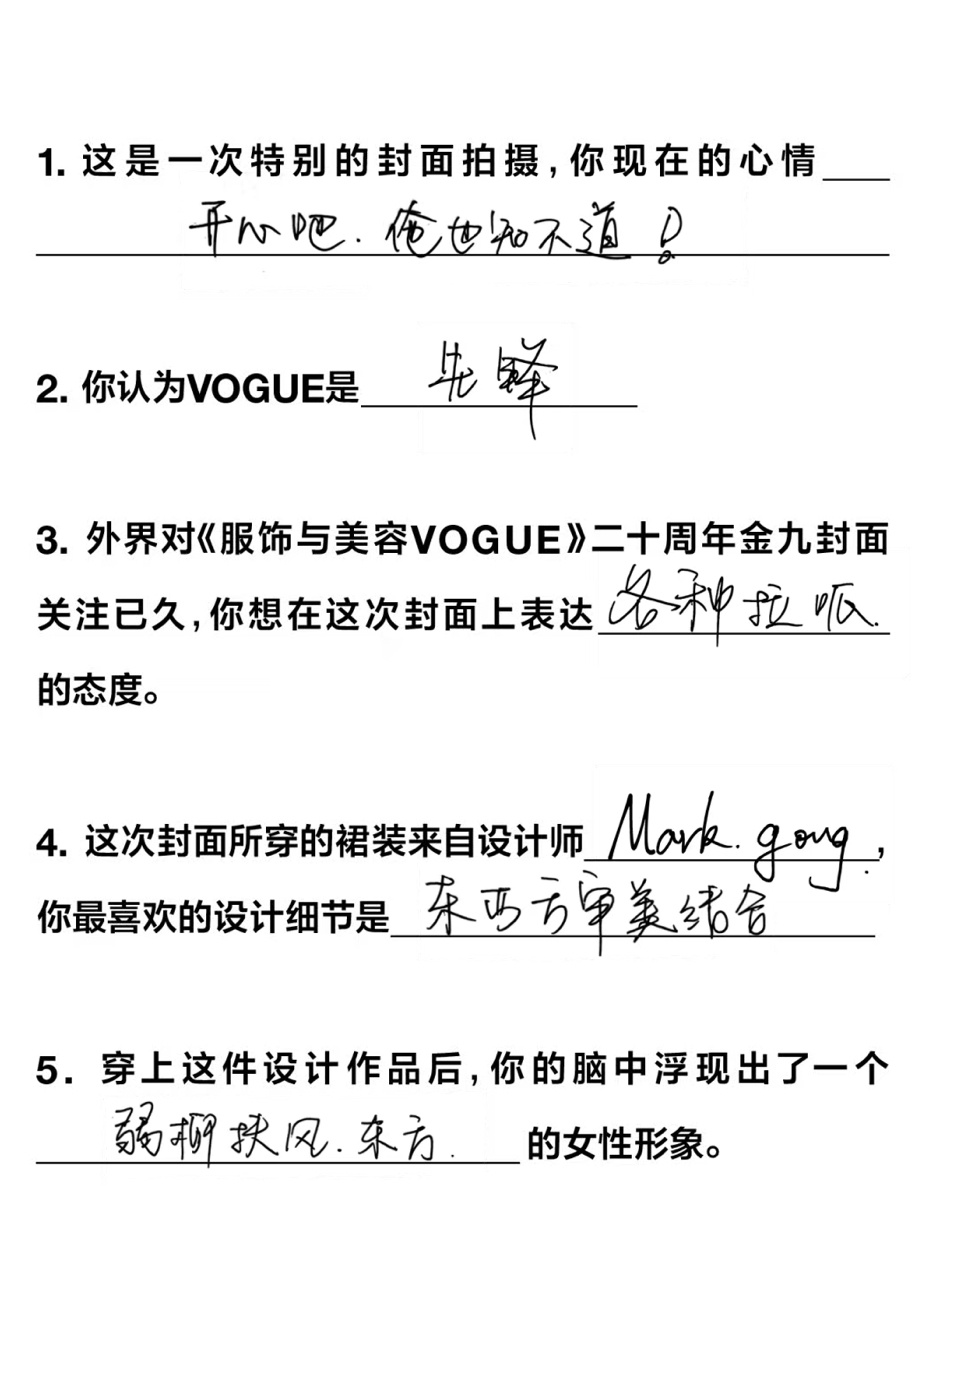 1. 这是一次特别的封面拍摄,你现在的心情
开心吧.俺也知不道!
2. 你认为VOGUE是 先锋
3. 外界对《服饰与美容VOGUE》二十周年金九封面
关注已久,你想在这次封面上表达 各种拉呱.
的态度。
4. 这次封面所穿的裙装来自设计师 Mark.gong.,
你最喜欢的设计细节是 东西方审美结合
5. 穿上这件设计作品后,你的脑中浮现出了一个
弱柳扶风.东方. 的女性形象。